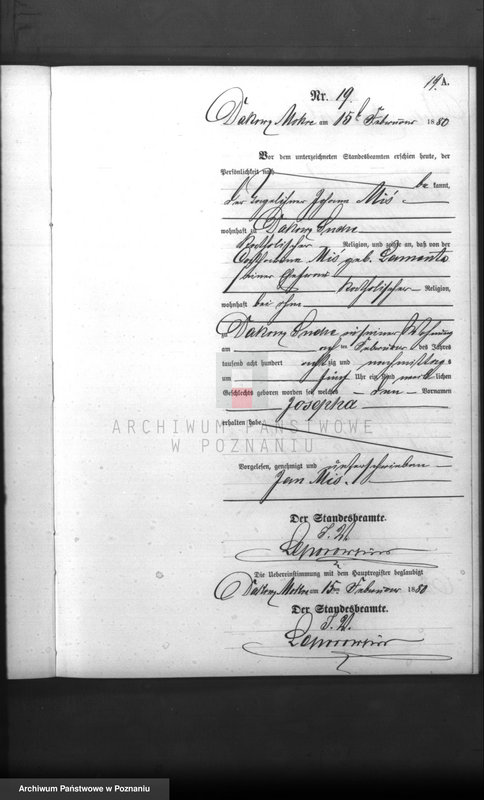 19. A.
Nr. 19.
Dakowy Mokre am 15t Februar 1880
Vor dem unterzeichneten Standesbeamten erschien heute, der
Persönlichkeit nach
be kannt,
der Tagelöhner Johann Miś
wohnhaft zu Dakowy Suche
katholischer Religion, und zeigte an, daß von der
Miś geb.
seiner Ehefrau
katholischer Religion,
wohnhaft bei ihm
zu Dakowy Suche in seiner Wohnung
am ten Februar des Jahres
tausend acht hundert achtzig und nachmittags
um fünf Uhr ein Kind weiblichen
Geschlechts geboren worden sei, welches den Vornamen
Josepha
erhalten habe.
ARCHIWUM PAŃSTWOWE
W POZNANIU
Vorgelesen, genehmigt und unterschrieben
Jan Miś.
Der Standesbeamte.
J. V.
Die Uebereinstimmung mit dem Hauptregister beglaubigt
Dakowy Mokre am 15ten Februar 1880
Der Standesbeamte.
J. V.
Archiwum Państwowe w Poznaniu